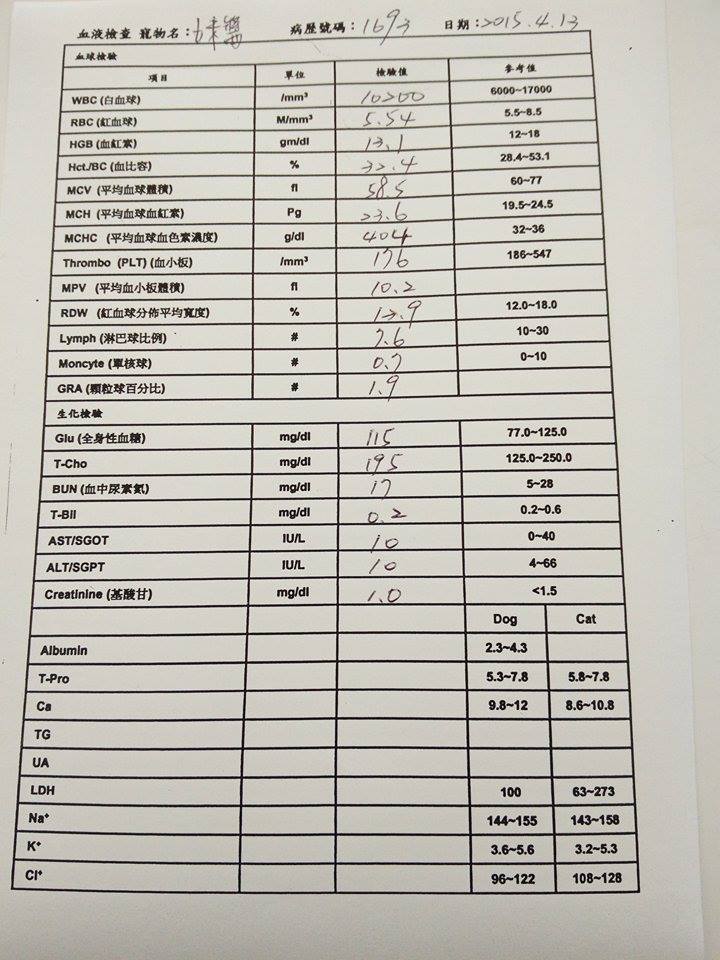 血液檢查 寵物名：妹醬 病歷號碼：1693 日期：2015.4.13
血球檢驗
項目 單位 檢驗值 參考值
WBC (白血球) /mm³ 10200 6000~17000
RBC (紅血球) M/mm³ 5.54 5.5~8.5
HGB (血紅素) gm/dl 13.1 12~18
Hct./BC (血比容) % 32.4 28.4~53.1
MCV (平均血球體積) fl 58.5 60~77
MCH (平均血球血紅素) Pg 23.6 19.5~24.5
MCHC (平均血球血色素濃度) g/dl 404 32~36
Thrombo (PLT) (血小板) /mm³ 176 186~547
MPV (平均血小板體積) fl 10.2
RDW (紅血球分佈平均寬度) % 12.9 12.0~18.0
Lymph (淋巴球比例) # 7.6 10~30
Moncyte (單核球) # 0.7 0~10
GRA (顆粒球百分比) # 1.9
生化檢驗
Glu (全身性血糖) mg/dl 115 77.0~125.0
T-Cho mg/dl 195 125.0~250.0
BUN (血中尿素氮) mg/dl 17 5~28
T-Bil mg/dl 0.2 0.2~0.6
AST/SGOT IU/L 10 0~40
ALT/SGPT IU/L 10 4~66
Creatinine (基酸甘) mg/dl 1.0 <1.5
Dog Cat
Albumin 2.3~4.3
T-Pro 5.3~7.8 5.8~7.8
Ca 9.8~12 8.6~10.8
TG
UA
LDH 100 63~273
Na⁺ 144~155 143~158
K⁺ 3.6~5.6 3.2~5.3
Cl⁺ 96~122 108~128